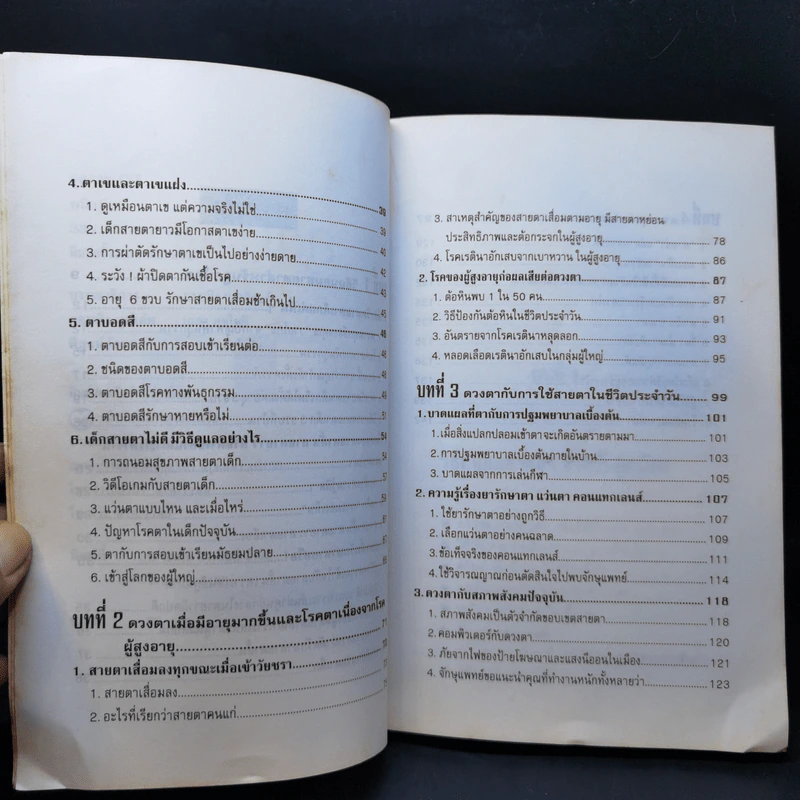 4. ตาเขและตาเขแฝง 39
1. ดูเหมือนตาเข แต่ความจริงไม่ใช่ 39
2. เด็กสายตายาวมีโอกาสตาเขง่าย
3. การผ่าตัดรักษาตาเขเป็นไปอย่างง่ายดาย
4. ระวัง ! ผ้าปิดตากันเชื้อโรค
5. อายุ 6 ขวบ รักษาสายตาเสื่อมช้าเกินไป
5. ตาบอดสี
1. ตาบอดสีกับการสอบเข้าเรียนต่อ
2. ชนิดของตาบอดสี
3. ตาบอดสีโรคทางพันธุกรรม
4. ตาบอดสีรักษาหายหรือไม่
6. เด็กสายตาไม่ดี มีวิธีดูแลอย่างไร 54
1. การถนอมสุขภาพสายตาเด็ก
2. วิดีโอเกมกับสายตาเด็ก
3. แว่นตาแบบไหน และเมื่อไหร่
4. ปัญหาโรคตาในเด็กปัจจุบัน
5. ตากับการสอบเข้าเรียนมัธยมปลาย
6. เข้าสู่โลกของผู้ใหญ่
บทที่ 2 ดวงตาเมื่อมีอายุมากขึ้นและโรคตาเนื่องจากโรค
ผู้สูงอายุ
1. สายตาเสื่อมลงทุกขณะเมื่อเข้าวัยชรา
1. สายตาเสื่อมลง
2. อะไรที่เรียกว่าสายตาคนแก่
3. สาเหตุสำคัญของสายตาเสื่อมตามอายุ มีสายตาหย่อน
ประสิทธิภาพและต้อกระจกในผู้สูงอายุ 78
4. โรคเรตินาอักเสบจากเบาหวาน ในผู้สูงอายุ 86
2. โรคของผู้สูงอายุก่อผลเสียต่อดวงตา 87
1. ต้อหินพบ 1 ใน 50 คน 87
2. วิธีป้องกันต้อหินในชีวิตประจำวัน 91
3. อันตรายจากโรคเรตินาหลุดลอก 93
4. หลอดเลือดเรตินาอักเสบในกลุ่มผู้ใหญ่ 95
บทที่ 3 ดวงตากับการใช้สายตาในชีวิตประจำวัน 99
1. บาดแผลที่ตากับการปฐมพยาบาลเบื้องต้น 101
1. เมื่อสิ่งแปลกปลอมเข้าตาจะเกิดอันตรายตามมา 101
2. การปฐมพยาบาลเบื้องต้นภายในบ้าน 103
3. บาดแผลจากการเล่นกีฬา 105
2. ความรู้เรื่องยารักษาตา แว่นตา คอนแทกเลนส์ 107
1. ใช้ยารักษาตาอย่างถูกวิธี 107
2. เลือกแว่นตาอย่างคนฉลาด 109
3. ข้อเท็จจริงของคอนแทกเลนส์ 111
4. ใช้วิจารณญาณก่อนตัดสินใจไปพบจักษุแพทย์ 114
3. ดวงตากับสภาพสังคมปัจจุบัน 118
1. สภาพสังคมเป็นตัวจำกัดขอบเขตสายตา 118
2. คอมพิวเตอร์กับดวงตา 120
3. ภัยจากไฟของป้ายโฆษณาและแสงนีออนในเมือง 121
4. จักษุแพทย์ขอแนะนำคุณที่ทำงานหนักทั้งหลายว่า 123